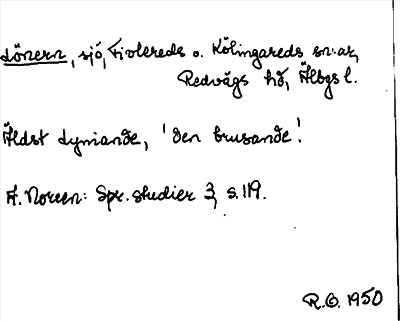 Lönern, sjö, Fivlereds o. Kölingareds sn:ar,
Redvägs hd, Älbgs l.
Äldst Lyniande, 'den brusande'.
A. Noreen: Spr. studier 3, s. 119.
R.O. 1950